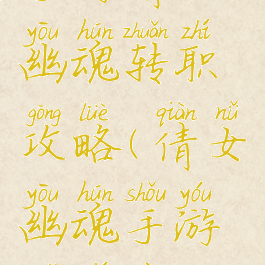 yōu hún zhuǎn zhí
幽魂转职
gōng lüè qiàn nǚ
攻略(倩女
yōu hún shǒu yóu
幽魂手游